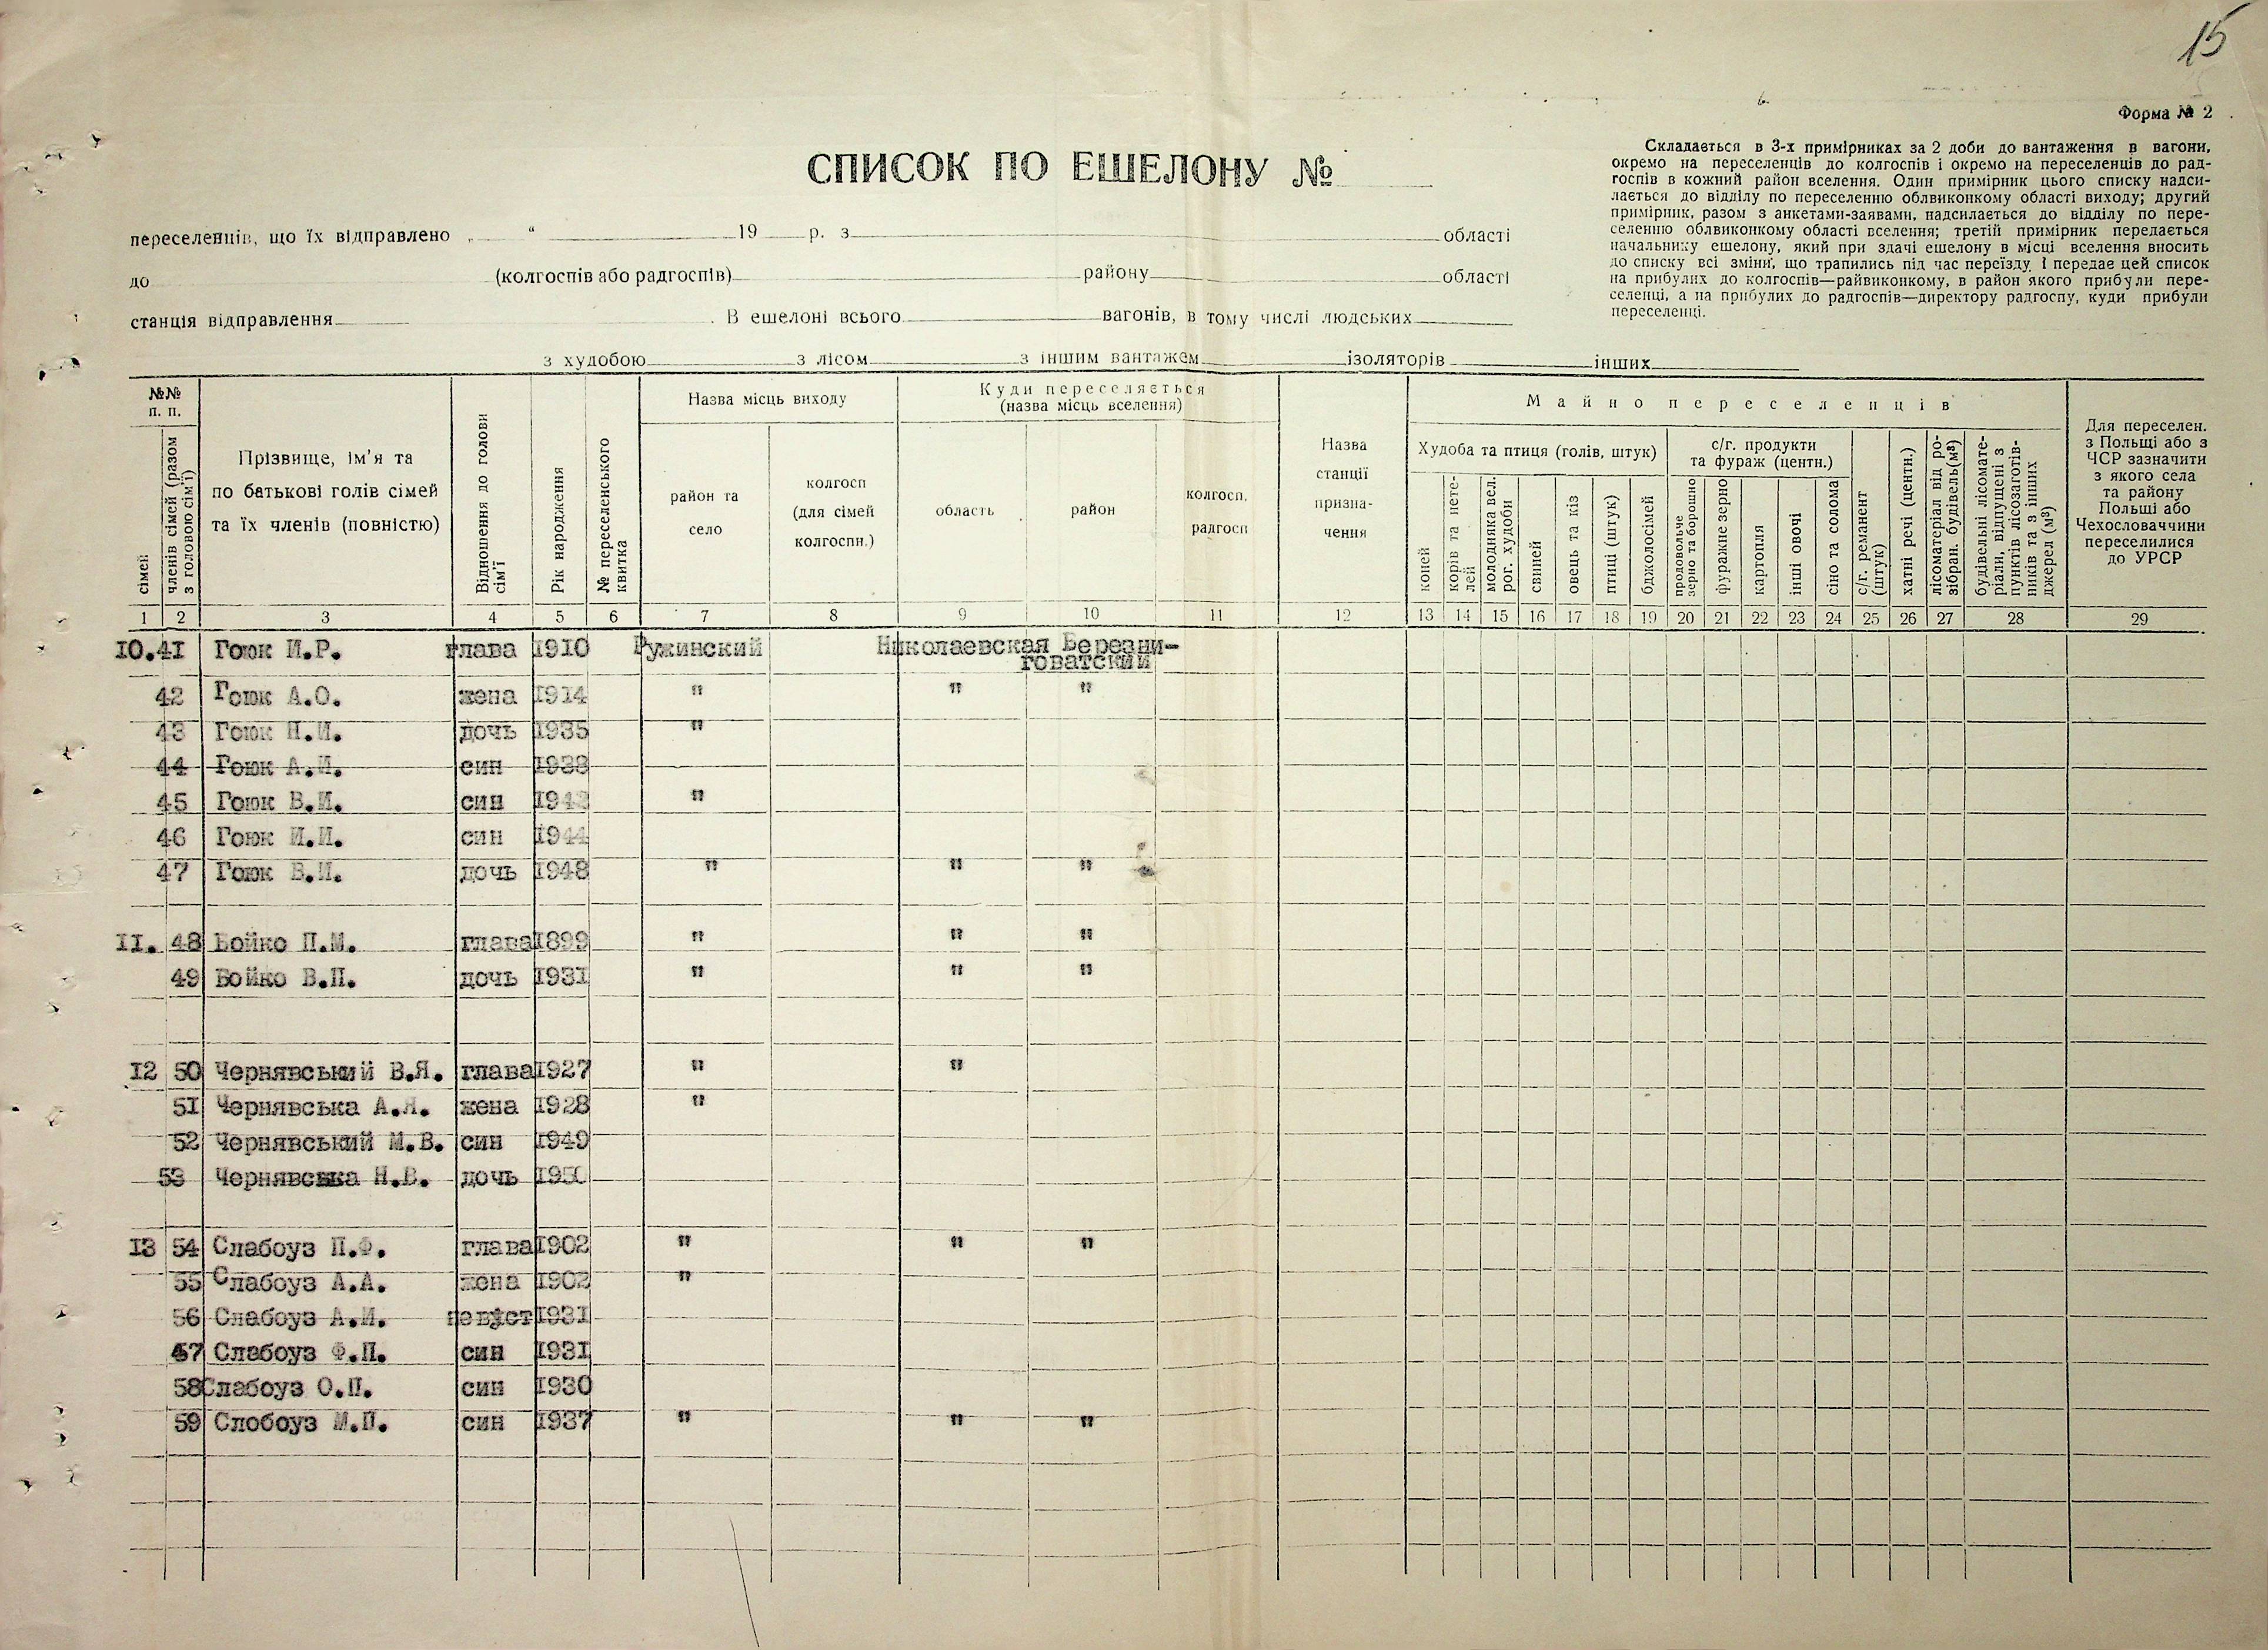 15
Форма № 2
СПИСОК ПО ЕШЕЛОНУ №
Складається в 3-х примірниках за 2 доби до вантаження в вагони,
окремо на переселенців до колгоспів і окремо на переселенців до рад-
госпів в кожний район вселення. Один примірник цього списку надси-
лається до відділу по переселенню облвиконкому області виходу; другий
примірник, разом з анкетами-заявами, надсилається до відділу по пере-
селенню облвиконкому області вселення; третій примірник передається
начальнику ешелону, який при здачі ешелону в місці вселення вносить
до списку всі зміни, що трапились під час переїзду і передає цей список
на прибулих до колгоспів—райвиконкому, в район якого прибули пере-
селенці, а на прибулих до радгоспів—директору радгоспу, куди прибули
переселенці.
переселенців, що їх відправлено „ “ 19 р. з області
до (колгоспів або радгоспів) району області
станція відправлення . В ешелоні всього вагонів, в тому числі людських
з худобою з лісом з іншим вантажем ізоляторів інших
№№ п. п.
сімей
членів сімей (разом з головою сім'ї)
Прізвище, ім'я та
по батькові голів сімей
та їх членів (повністю)
Відношення до голови сім'ї
Рік народження
№ переселенського квитка
Назва місць виходу
район та село
колгосп (для сімей колгоспн.)
Куди переселяється
(назва місць вселення)
область
район
колгосп, радгосп
Назва станції призна-чення
Майно переселенців
Худоба та птиця (голів, штук)
коней
корів та нете-лей
молодняка вел. рог. худоби
свиней
овець та кіз
птиці (штук)
бджолосімей
с/г. продукти
та фураж (центн.)
продовольче зерно та борошно
фуражне зерно
картопля
інші овочі
сіно та солома
с/г. реманент (штук)
хатні речі (центн.)
лісоматеріал від ро-зібран. будівель (м³)
будівельні лісомате-ріали, відпущені з пунктів лісозаготів-ників та з інших джерел (м³)
Для переселен.
з Польщі або з
ЧСР зазначити
з якого села
та району
Польщі або
Чехословаччини
переселилися
до УРСР
1 2 3 4 5 6 7 8 9 10 11 12 13 14 15 16 17 18 19 20 21 22 23 24 25 26 27 28 29
10.41 Гоюк И.Р. глава 1910 Ружинский Николаевская Березни-
говатский
42 Гоюк А.О. жена 1914 " " "
43 Гоюк Н.И. дочь 1935 "
44 Гоюк А.И. син 1938
45 Гоюк В.И. син "
46 Гоюк И.И. син 1944
47 Гоюк В.И. дочь 1948 " " "
11. 48 Бойко П.М. глава 1899 " " "
49 Бойко В.П. дочь 1931 " " "
12 50 Чернявський В.Я. глава 1927 " "
51 Чернявська А.Я. жена 1928 "
52 Чернявський М.В. син 1949
53 Чернявська Н.В. дочь 1950
13 54 Слабоуз П.Ф. глава 1902 " " "
55 Слабоуз А.А. жена 1902 "
56 Слабоуз А.И. невуст 1931
57 Слабоуз Ф.П. син 1931
58 Слабоуз О.П. син 1930
59 Слобоуз М.П. син 1937 " " "